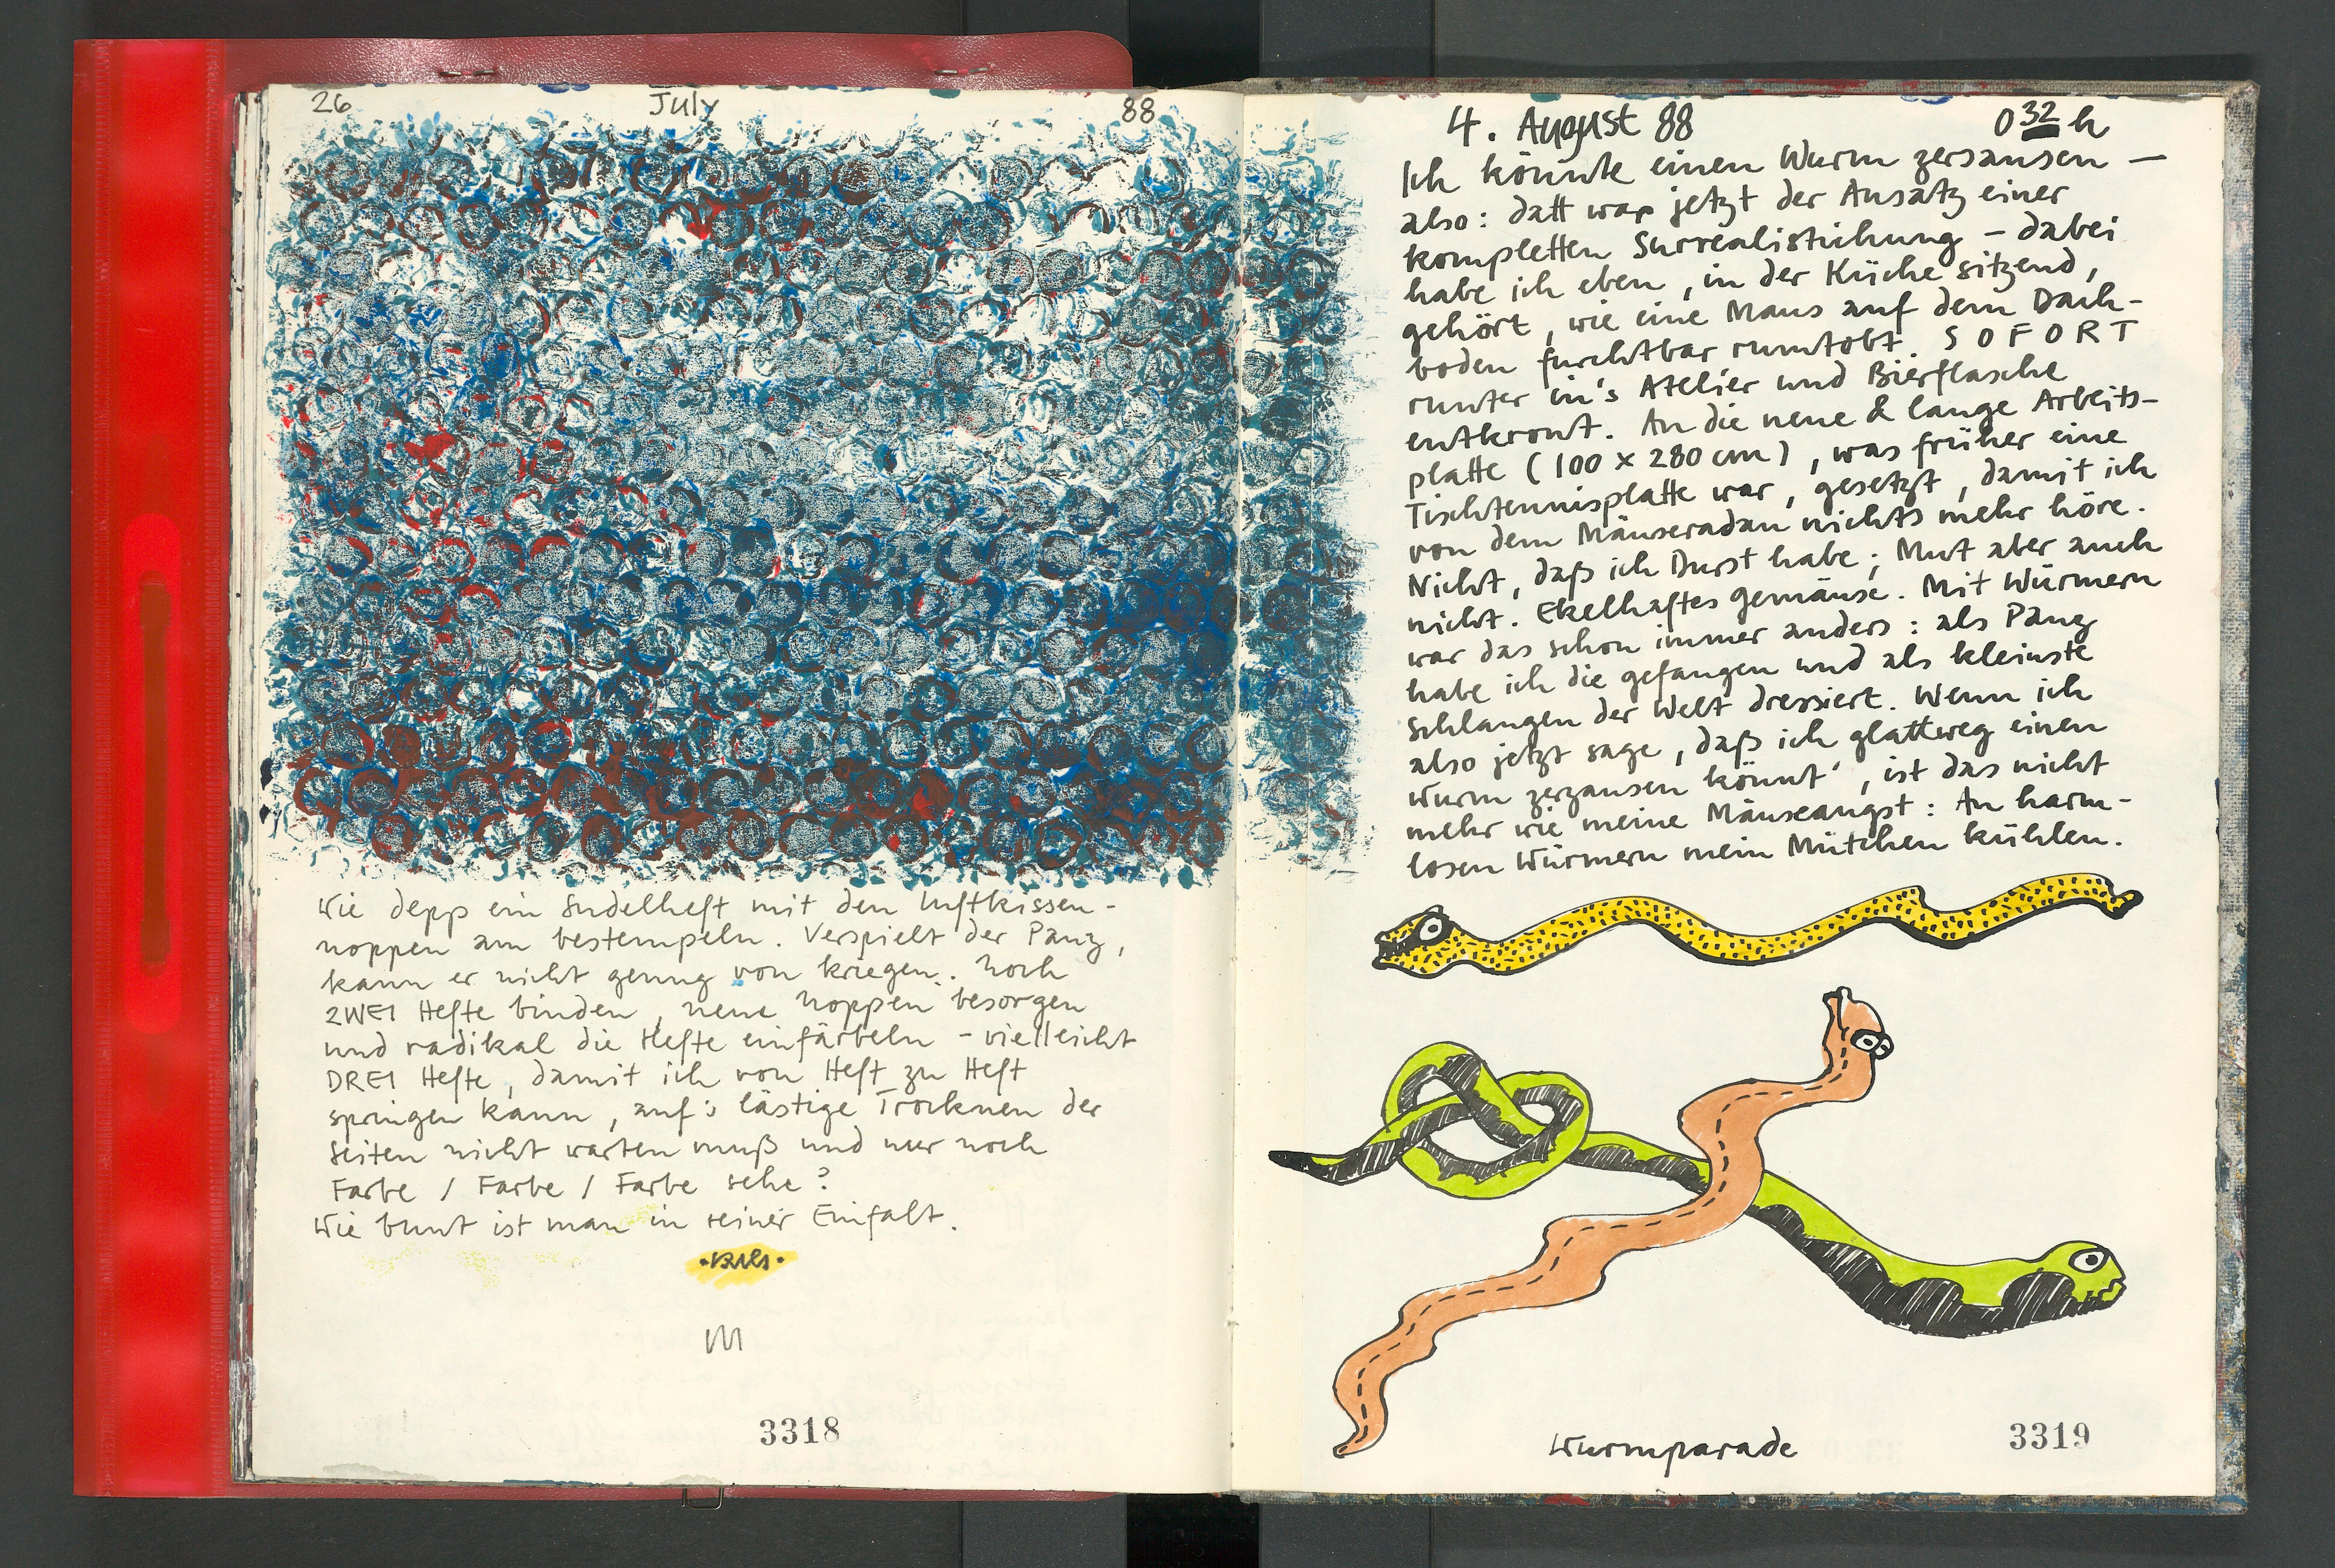 26 July 88
Wie depp ein Sudelheft mit den Luftkissen-
noppen am bestempeln. Verspielt der Panz,
kann er nicht genug von kriegen. Noch
ZWEI Hefte binden, neue Noppen besorgen
und radikal die Hefte einfärbeln - vielleicht
DREI Hefte, damit ich von Heft zu Heft
springen kann, auf's lästige Trocknen der
Seiten nicht warten muß und nur noch
Farbe / Farbe / Farbe sehe?
Wie bunt ist man in seiner Einfalt.
3318
4. August 88 0 32 h
Ich könnte einen Wurm zersausen —
also: datt war jetzt der Ansatz einer
kompletten Surrealistichung - dabei
habe ich eben, in der Küche sitzend,
gehört, wie eine Maus auf dem Dach-
boden furchtbar rumtobt. SOFORT
runter in's Atelier und Bierflasche
entkront. An die neue & lange Arbeits-
platte (100 x 280 cm), was früher eine
Tischtennisplatte war, gesetzt, damit ich
von dem Mäuseradau nichts mehr höre.
Nicht, daß ich Durst habe; Mut aber auch
nicht. Ekelhaftes Gemäuse. Mit Würmern
war das schon immer anders: als Panz
habe ich die gefangen und als kleinste
Schlangen der Welt dressiert. Wenn ich
also jetzt sage, daß ich glattweg einen
Wurm zerzausen könnt', ist das nicht
mehr wie meine Mäuseangst: An harm-
losen Würmern mein Mütchen kühlen.
Wurmparade
3319